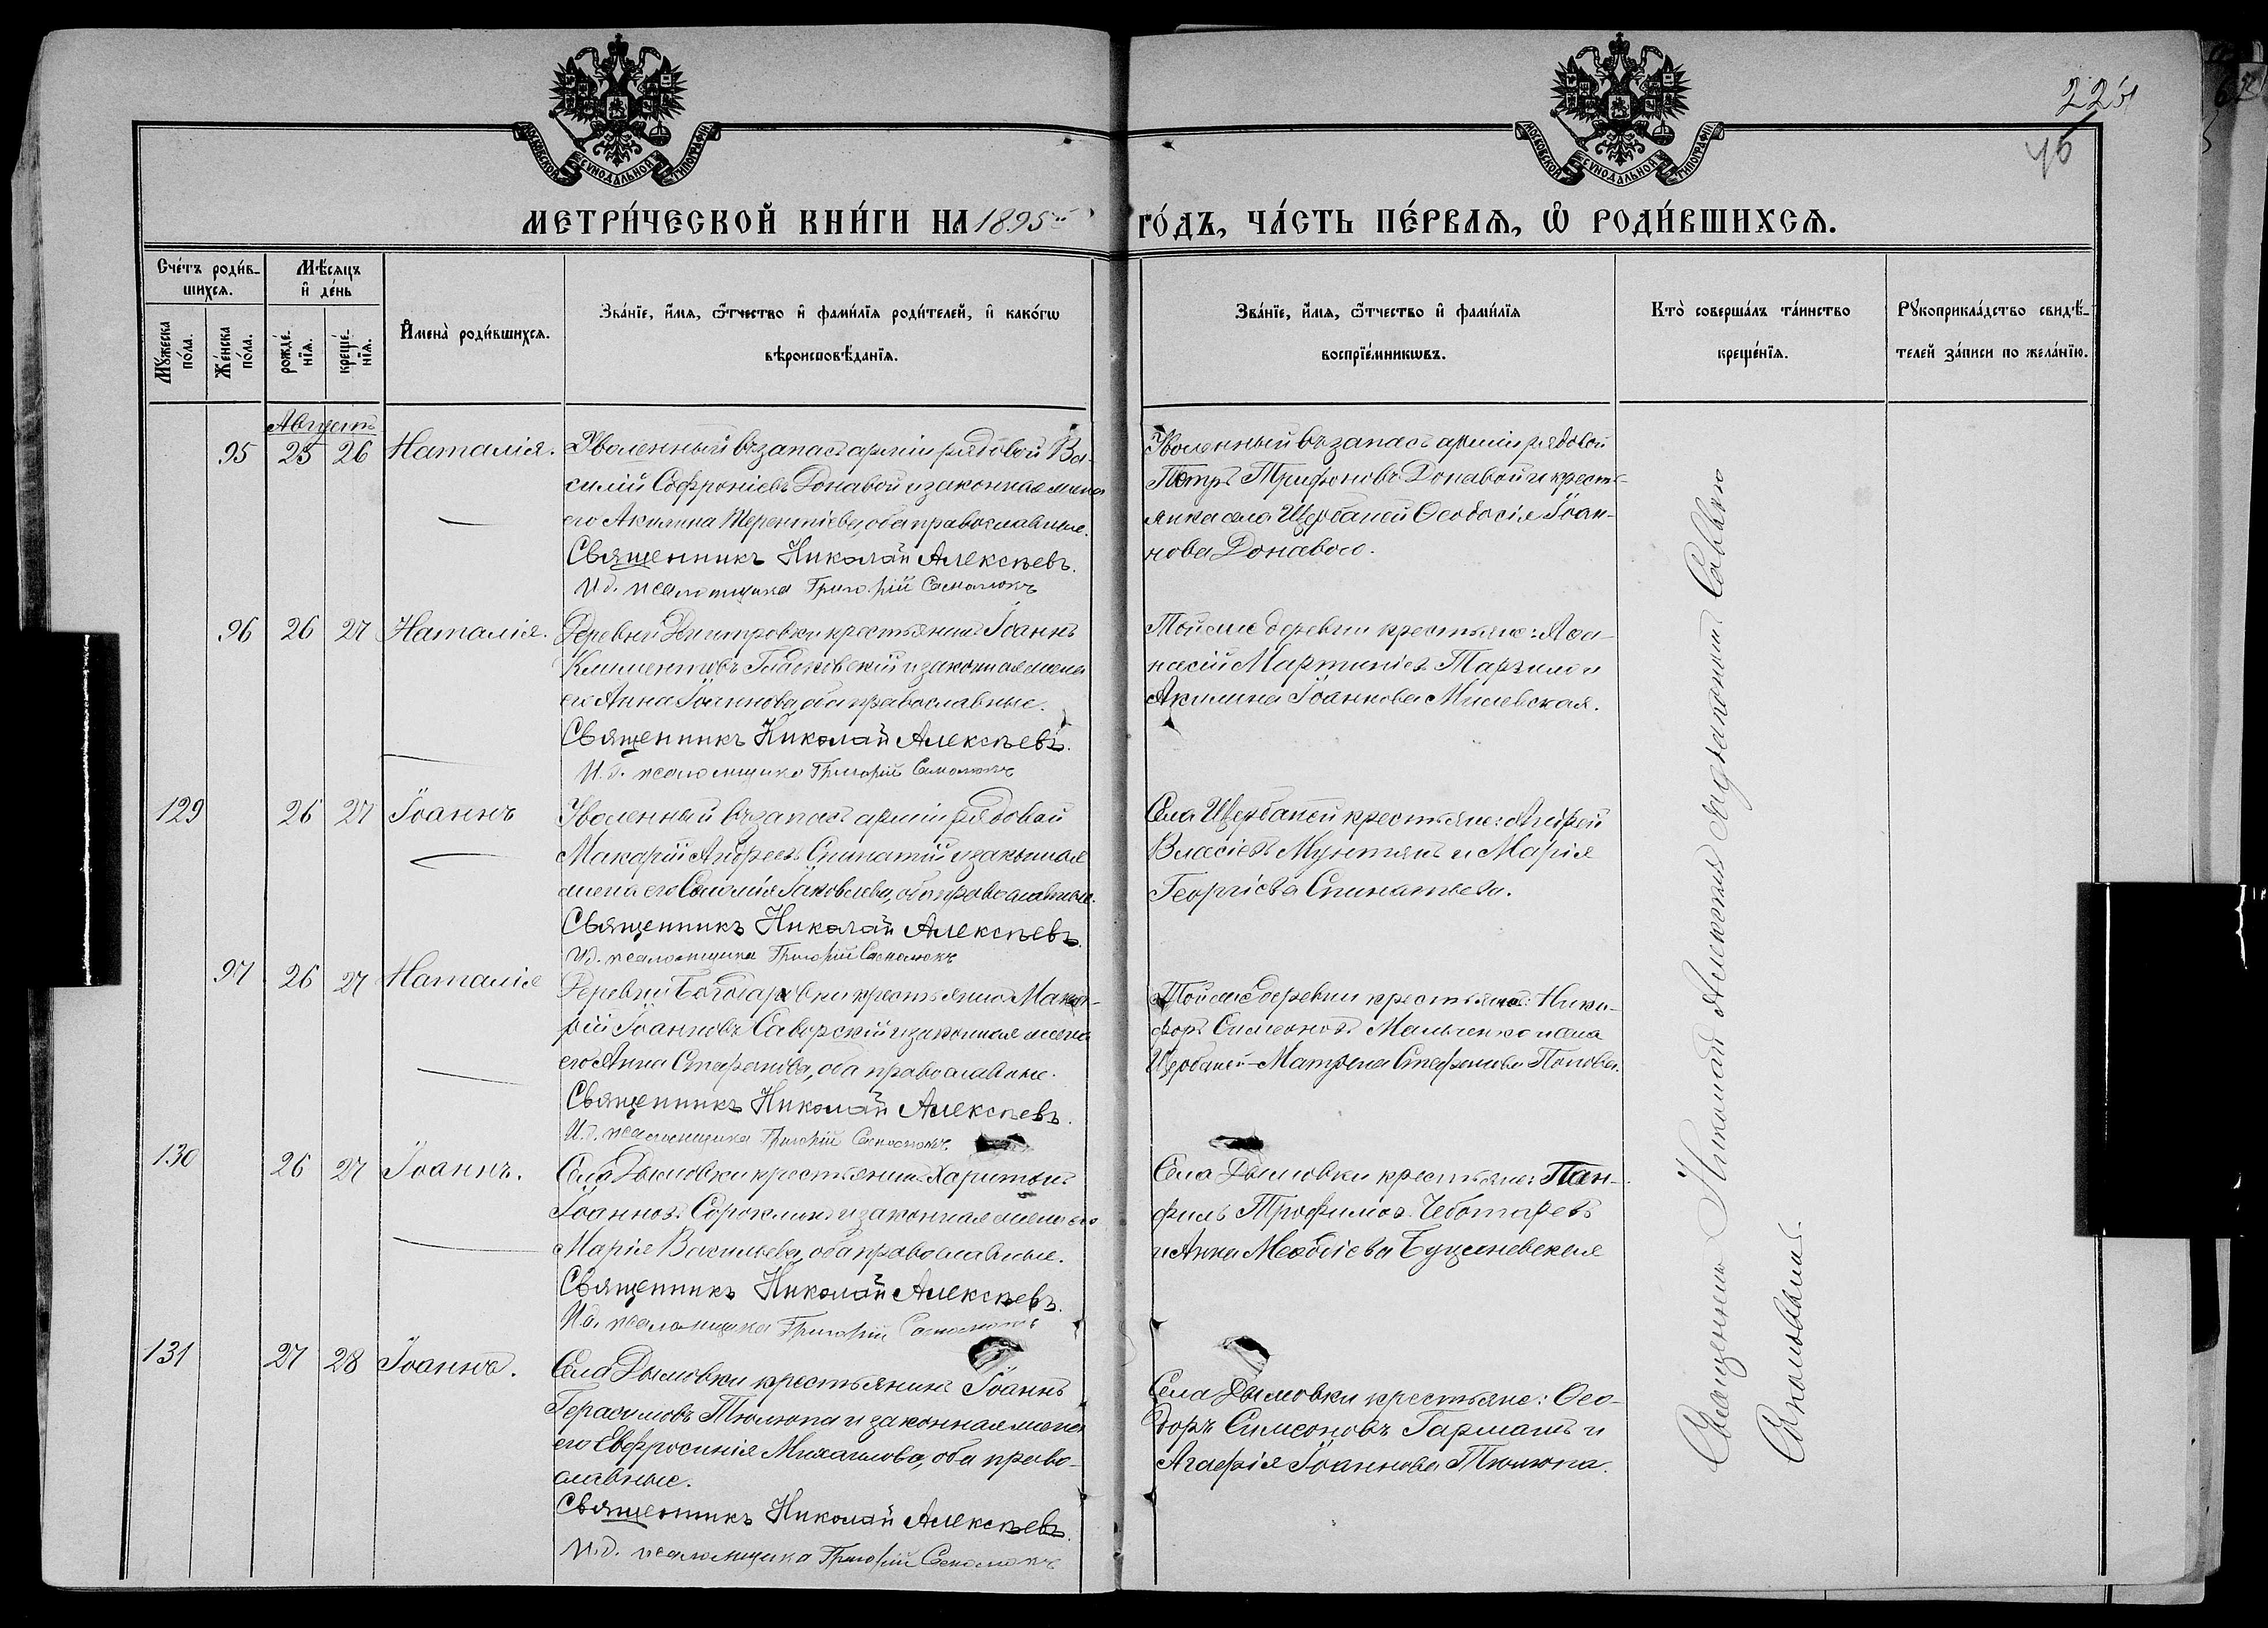 МОСКОВСКОЙ СУНОДАЛЬНОЙ ТИПОГРАФІИ
МОСКОВСКОЙ СУНОДАЛЬНОЙ ТИПОГРАФІИ
225
МЕТРИ́ЧЕСКОЙ КНИ́ГИ НА 1895й
ГО́ДЪ, ЧА́СТЬ ПЕ́РВАѦ, Ѡ҆ РОДИ́ВШИХСѦ.
Сче́тъ роди́в-
шихсѧ.
Мѣ́сѧцъ
и҆ де́нь
Мꙋ́жеска
по́ла.
Же́нска
по́ла.
рожде́-
нїѧ.
креще́-
нїѧ.
И҆мена̀ роди́вшихсѧ.
Зва́нїе, и҆́мѧ, ѻ҆́тчество и҆ фами́лїѧ роди́телей, и҆ како́гѡ
вѣроисповѣ́данїѧ.
Зва́нїе, и҆́мѧ, ѻ҆́тчество и҆ фами́лїѧ
воспрїе́мникѡвъ.
Кто̀ соверша́лъ та́инство
креще́нїѧ.
Рꙋкоприкла́дство свидѣ́-
телей за́писи по жела́нїю.
Августъ
95 25 26 Наталія. Уволенный въ запасъ арміи рядовой Ва-
силій Софроніевъ Донавой и законная жена
его Акилина Терентіева, оба православные.
Священникъ Николай Алексѣевъ.
И.д. псаломщика Григорій
Уволенный въ запасъ арміи рядовой
Петръ Трифоновъ Донавой и кресть-
янка села Щербаней Ѳеодосія Іоан-
нова Донавого.
96 26 27 Наталія. Деревни Дмитровки крестьянинъ Іоаннъ
Климентовъ и законная жена
его Анна Іоаннова, оба православные.
Священникъ Николай Алексѣевъ.
И.д. псаломщика Григорій
Той же деревни крестьяне: Аѳа-
насій и
Акилина Іоаннова Милевская.
129 26 27 Іоаннъ Уволенный въ запасъ арміи рядовой
Макарій Андреевъ Спинатий и законная
жена его Іаковлева, оба православные.
Священникъ Николай Алексѣевъ.
И.д. псаломщика Григорій
Села Щербаней крестьяне: Андрей
Власіевъ Мунтянъ и Марія
Георгіева Спинатьева.
97 26 27 Наталія Деревни крестьянинъ Мака-
рій Іоанновъ Саворскій и законная жена
его Анна Стефанова, оба православные.
Священникъ Николай Алексѣевъ.
И.д. псаломщика Григорій
Той же деревни крестьянинъ: Ники-
форъ Симеоновъ Мальченко и села
Щербаней-Матрона Стефанова Попова.
130 26 27 Іоаннъ. Села Дымовки крестьянинъ Харитонъ
Іоанновъ и законная жена его
Марія Васильева, оба православные.
Священникъ Николай Алексѣевъ.
И.д. псаломщика Григорій
Села Дымовки крестьяне: Пан-
филъ Трофимовъ Чеботаревъ
и Анна
131 27 28 Іоаннъ. Села Дымовки крестьянинъ Іоаннъ
Герасимовъ Тюлюпа и законная жена
его Евфросинія Михаилова, оба право-
славные.
Священникъ Николай Алексѣевъ.
И.д. псаломщика Григорій
Села Дымовки крестьяне: Ѳео-
доръ Симеоновъ Гарматъ и
Агафія Іоаннова Тюлюпа.
Священникъ Николай Алексѣевъ